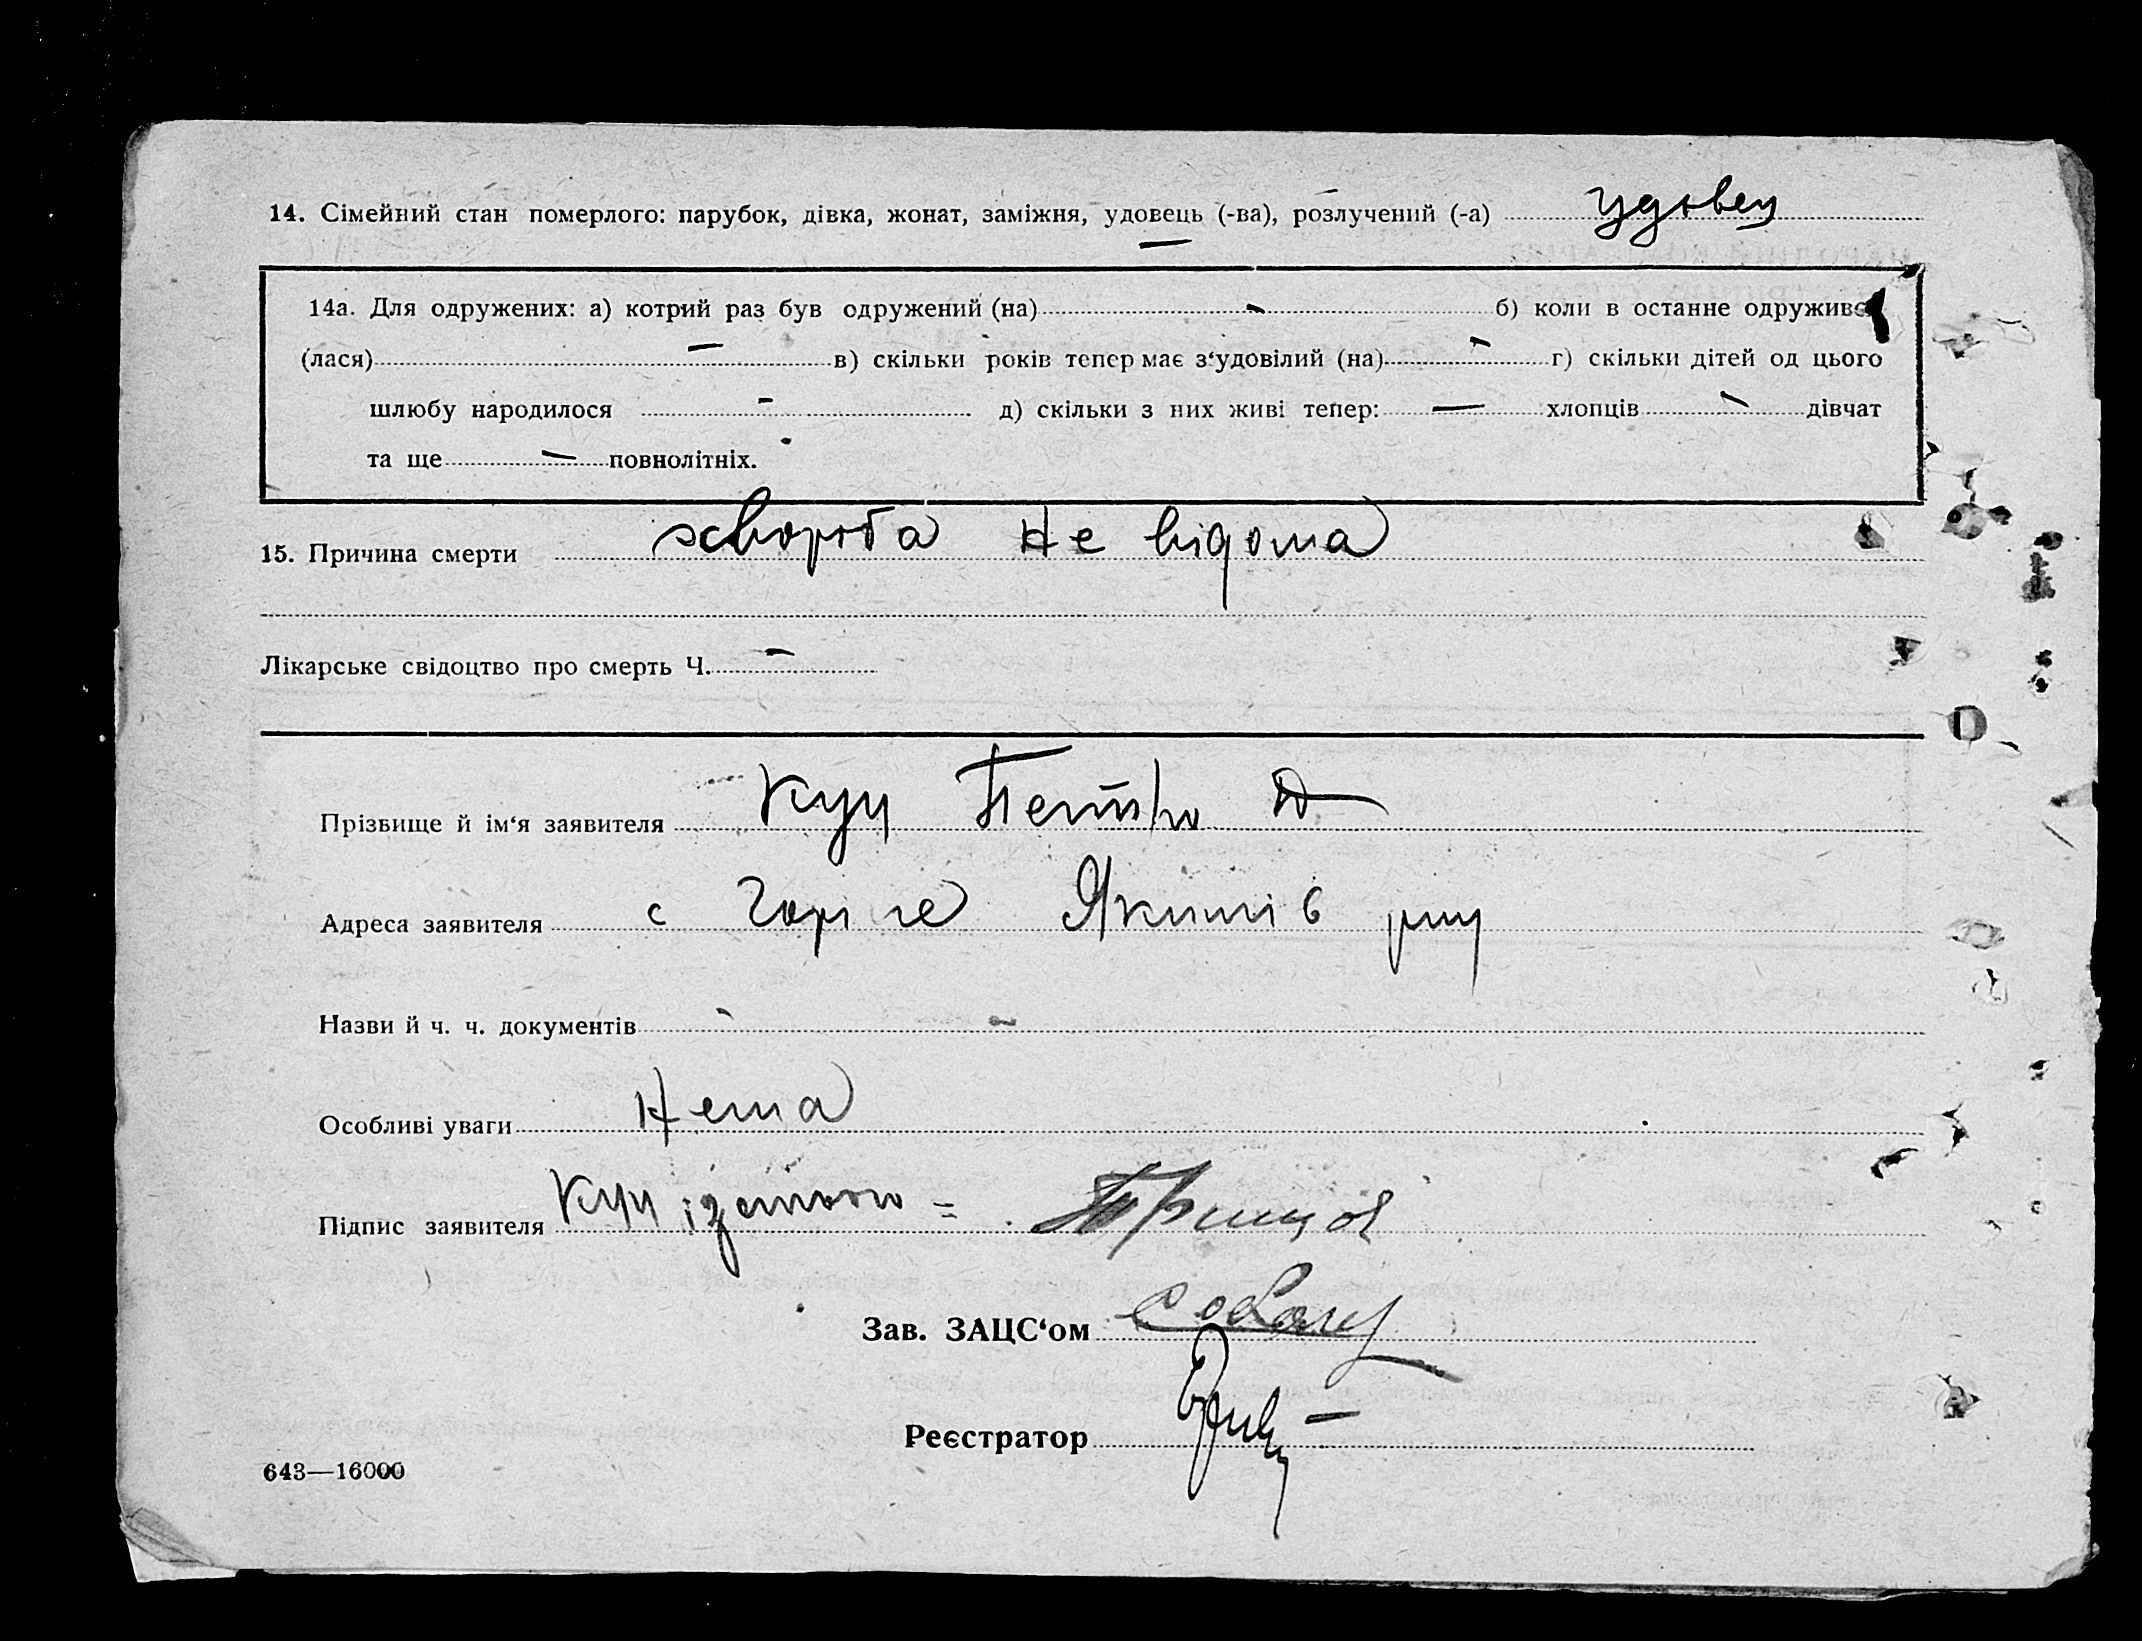 14. Сімейний стан померлого: парубок, дівка, жонат, заміжня, удовець (-ва), розлучений (-а) удовец
14а. Для одружених: а) котрий раз був одружений (на) – б) коли в останне одружився
(лася) – в) скільки років тепер має з‘удовілий (на) – г) скільки дітей од цього
шлюбу народилося – д) скільки з них живі тепер: – хлопців – дівчат
та ще – повнолітніх.
15. Причина смерти хвороба не відома
Лікарське свідоцтво про смерть Ч. –
Прізвище й ім‘я заявителя Куц Петро Д
Адреса заявителя с Якимів
Назви й ч. ч. документів - -
Особливі уваги нема
Підпис заявителя Куц
Зав. ЗАЦС‘ом
Реєстратор
643—16000